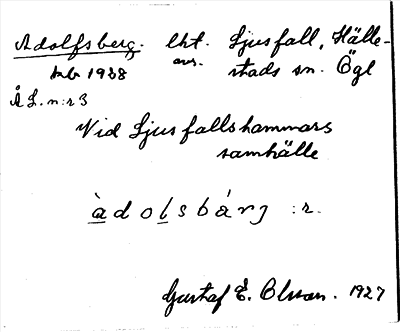 Adolfsberg. lht. Ljusfall, Hälle-
avs. stads sn. Ögl
ÅL. n:r 3
Vid Ljusfallshammars
samhälle
àdolsbárj :r.
Gustaf E. Olsson. 1927